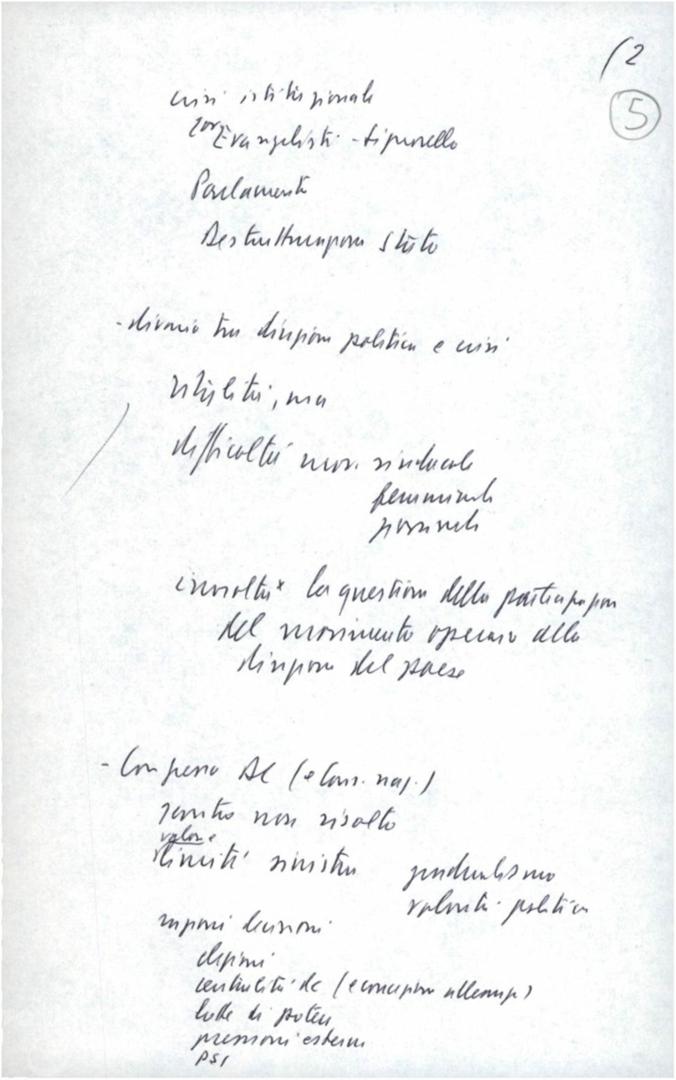 (2
5
crisi istituzionale
Evangelisti - Signorello
Parlamento
Destrutturazione Stato
- divario tra direzione politica e crisi
stabilità, ma
difficoltà mov. sindacale
femminile
giovanile
irrisolta la questione della partecipazione
del movimento operaio alla
direzione del paese
- Congresso DC (e Cons. naz.)
scontro non risolto
valore
limiti sinistra gradualismo
volontà politica
decisioni
centralità dc (e concezione alleanze)
lotte di potere
pressioni esterne
PSI